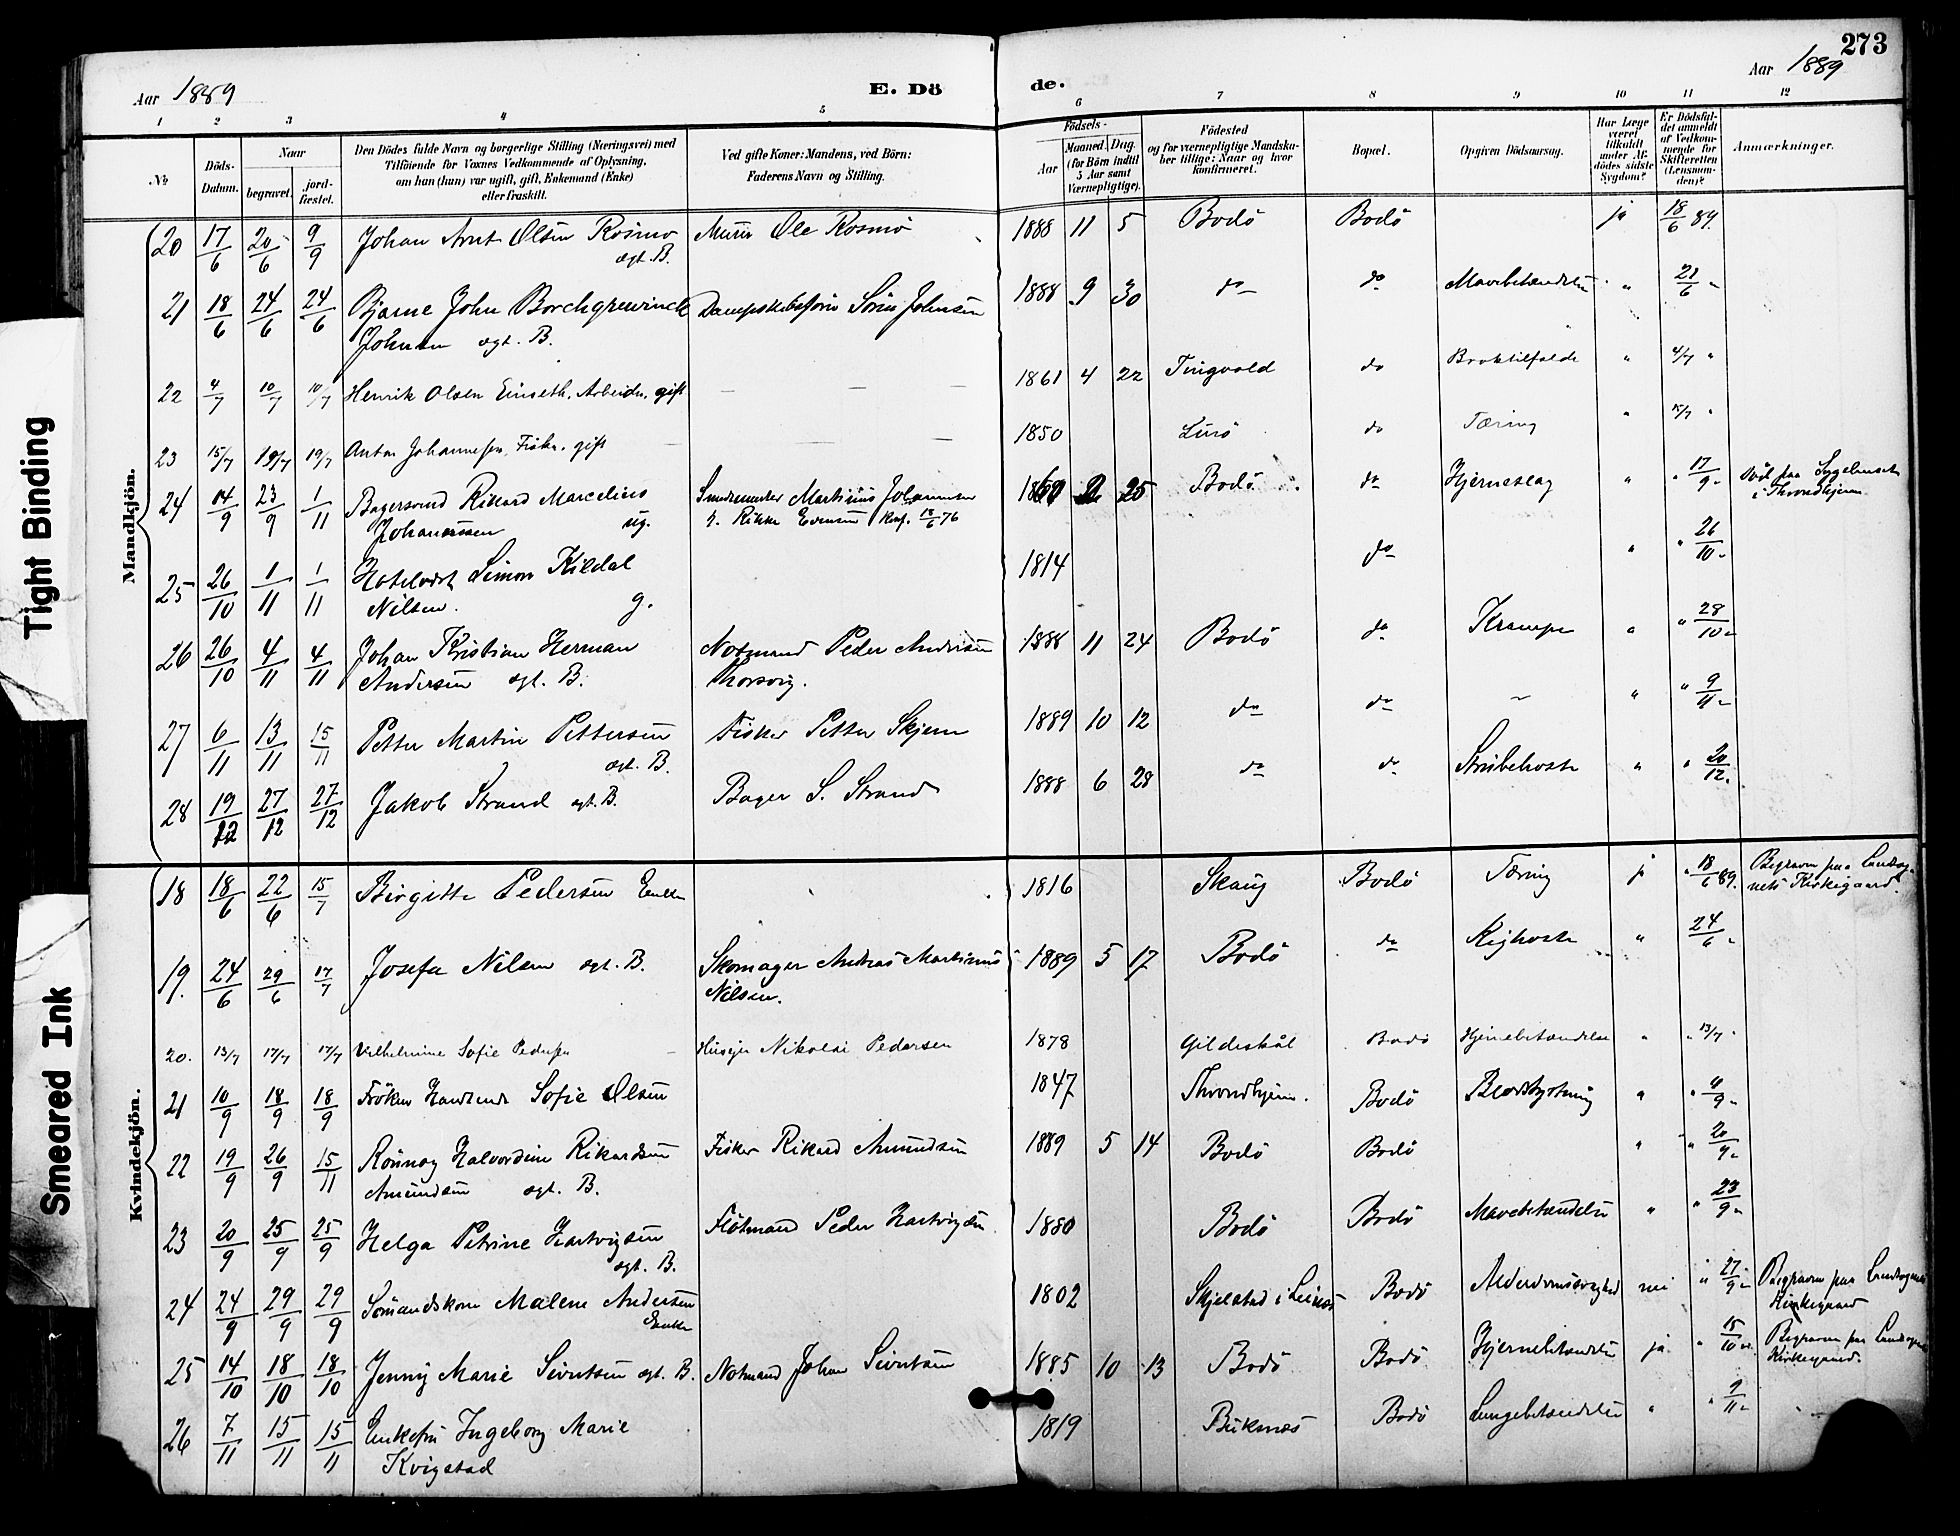 273
Aar 1889
E. Dö
de.
Aar 1889
1 2 3 4 5 6 7 8 9 10 11 12
№
Döds-
Datum.
Naar
begravet.
jord-
fæstet.
Den Dödes fulde Navn og borgerlige Stilling (Næringsvei) med
Tilföiende for Voxnes Vedkommende af Oplysning,
om han (hun) var ugift, gift, Enkemand (Enke)
eller fraskilt.
Ved gifte Koner: Mandens, ved Börn:
Faderens Navn og Stilling.
Födsels-
Aar
Maaned Dag.
(for Börn indtil
5 Aar samt
Værnepligtige).
Födested
og for værnepligtige Mandska-
ber tillige: Naar og hvor
konfirmeret.
Bopæl.
Opgiven Dödsaarsag.
Har Læge
været
tilkaldt
under Af-
dödes sidste
Sygdom?
Er Dödsfal-
det anmeldt
af Vedkom-
mende for
Skifteretten
(Lensman-
den)?
Anmærkninger.
Mandkjön.
20 17/6 20/6 9/9 Johan Arnt Olsen Rosmo Murer Ole Rosmo 1888 11 5 Bodö Bodö ja 18/6 89.
ægt. B.
21 18/6 24/6 24/6 Bjarne John Borchgrewinck Dampskibsförer Sören Johnsen 1888 9 30 do do Mavebetændelse " 21/6 "
Johnsen ægt. B.
22 4/7 10/7 10/7 Henrik Olsen Einseth, Arbeider, gift — — — 1861 4 22 Tingvold do Broktilfælde " 4/7 "
23 15/7 19/7 19/7 Anton Johannesen, Fisker, gift — — — 1850 Lurö do Tæring " 15/7 "
24 14/9 23/9 1/11 Bagersvend Rikard Marcelius Snedkermester Martinus Johannesen 25 Bodö do Hjerneslag " " 17/9 " Död paa Sygehuset
Johannessen ug. h. Rikke Evensen Konf. 18/6 76 i Throndhjem
25 26/10 1/11 1/11 Hotelvært Simon Kildal 1814 do " " 26/10 "
Nilsen. g.
26 26/10 4/11 4/11 Johan Kristian Herman Notmand Peder Andersen 1888 11 24 Bodö do Krampe " " 28/10 "
Andersen ægt. B. Thorsvig.
27 6/11 13/11 15/11 Petter Martin Pettersen Fisker Petter Skjem 1889 10 12 do do — " " 9/11 "
ægt. B.
28 19/12 27/12 27/12 Jakob Strand ægt. B. Bager S. Strand 1888 6 28 do do Strubehoste " " 20/12 "
Kvindekjön.
18 18/6 22/6 15/7 Birgitte Pedersen Enke 1816 Skaug Bodö Tæring ja " 18/6 89. Begraven paa Landsog-
nets Kirkegaard.
19. 24/6 29/6 17/7 Josefa Nilsen ægt. B. Skomager Andreas Martinus 1889 5 17 Bodö do Kighoste " 24/6 "
Nilsen.
20. 13/7 17/7 17/7 Vilhelmine Sofie Pedersen — Huseier Nikolai Pedersen 1878 Gildeskål Bodö Hjernebetændelse " " 13/7 "
21 10/9 18/9 18/9 Fröken Sofie Olsen 1847 Throndhjem. Bodö Blodstyrtning " " 9 "
22 19/9 26/9 15/11 Rönnog Halvordine Rikardsen Fisker Rikard Amundsen 1889 5 14 Bodö Bodö " " 20/9 "
Amundsen ægt. B.
23 20/9 25/9 25/9 Helga Petrine Hartvigsen Flötmand Peder Hartvigsen 1880 Bodö Bodö Mavebetændelse " " 23/9 "
ægt. B.
24 24/9 29/9 29/9 Sömandskone Malene Andersen 1802 Skjelstad i Bodö Alderdomssvaghed nei " 27/9 " Begraven paa Landsognets
Enke Kirkegaard
25 14/10 18/10 18/10 Jenny Marie Sivertsen ægt. B. Notmand Johan Sivertsen 1885 10 13 Bodö Bodö Hjernebetændelse ja " 15/10 " Begraven paa Landsognets
Kirkegaard.
26 7/11 15/11 15/11 Enkefru Ingeborg Marie 1819 Buksnæs Bodö Lungebetændelse " " 9/11 "
Kvigstad
Tight Binding
Smeared Ink